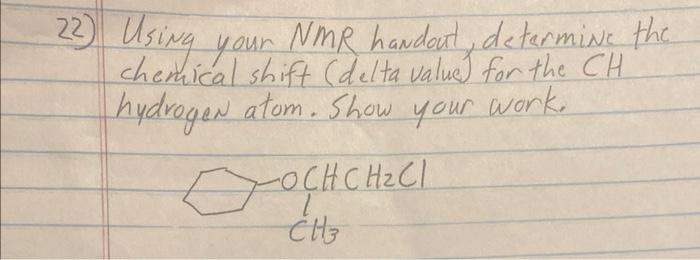 22) Using your NMR handout, determine the
chemical shift (delta value) for the CH
hydrogen atom. Show your work.
OCHCH2Cl
CH3